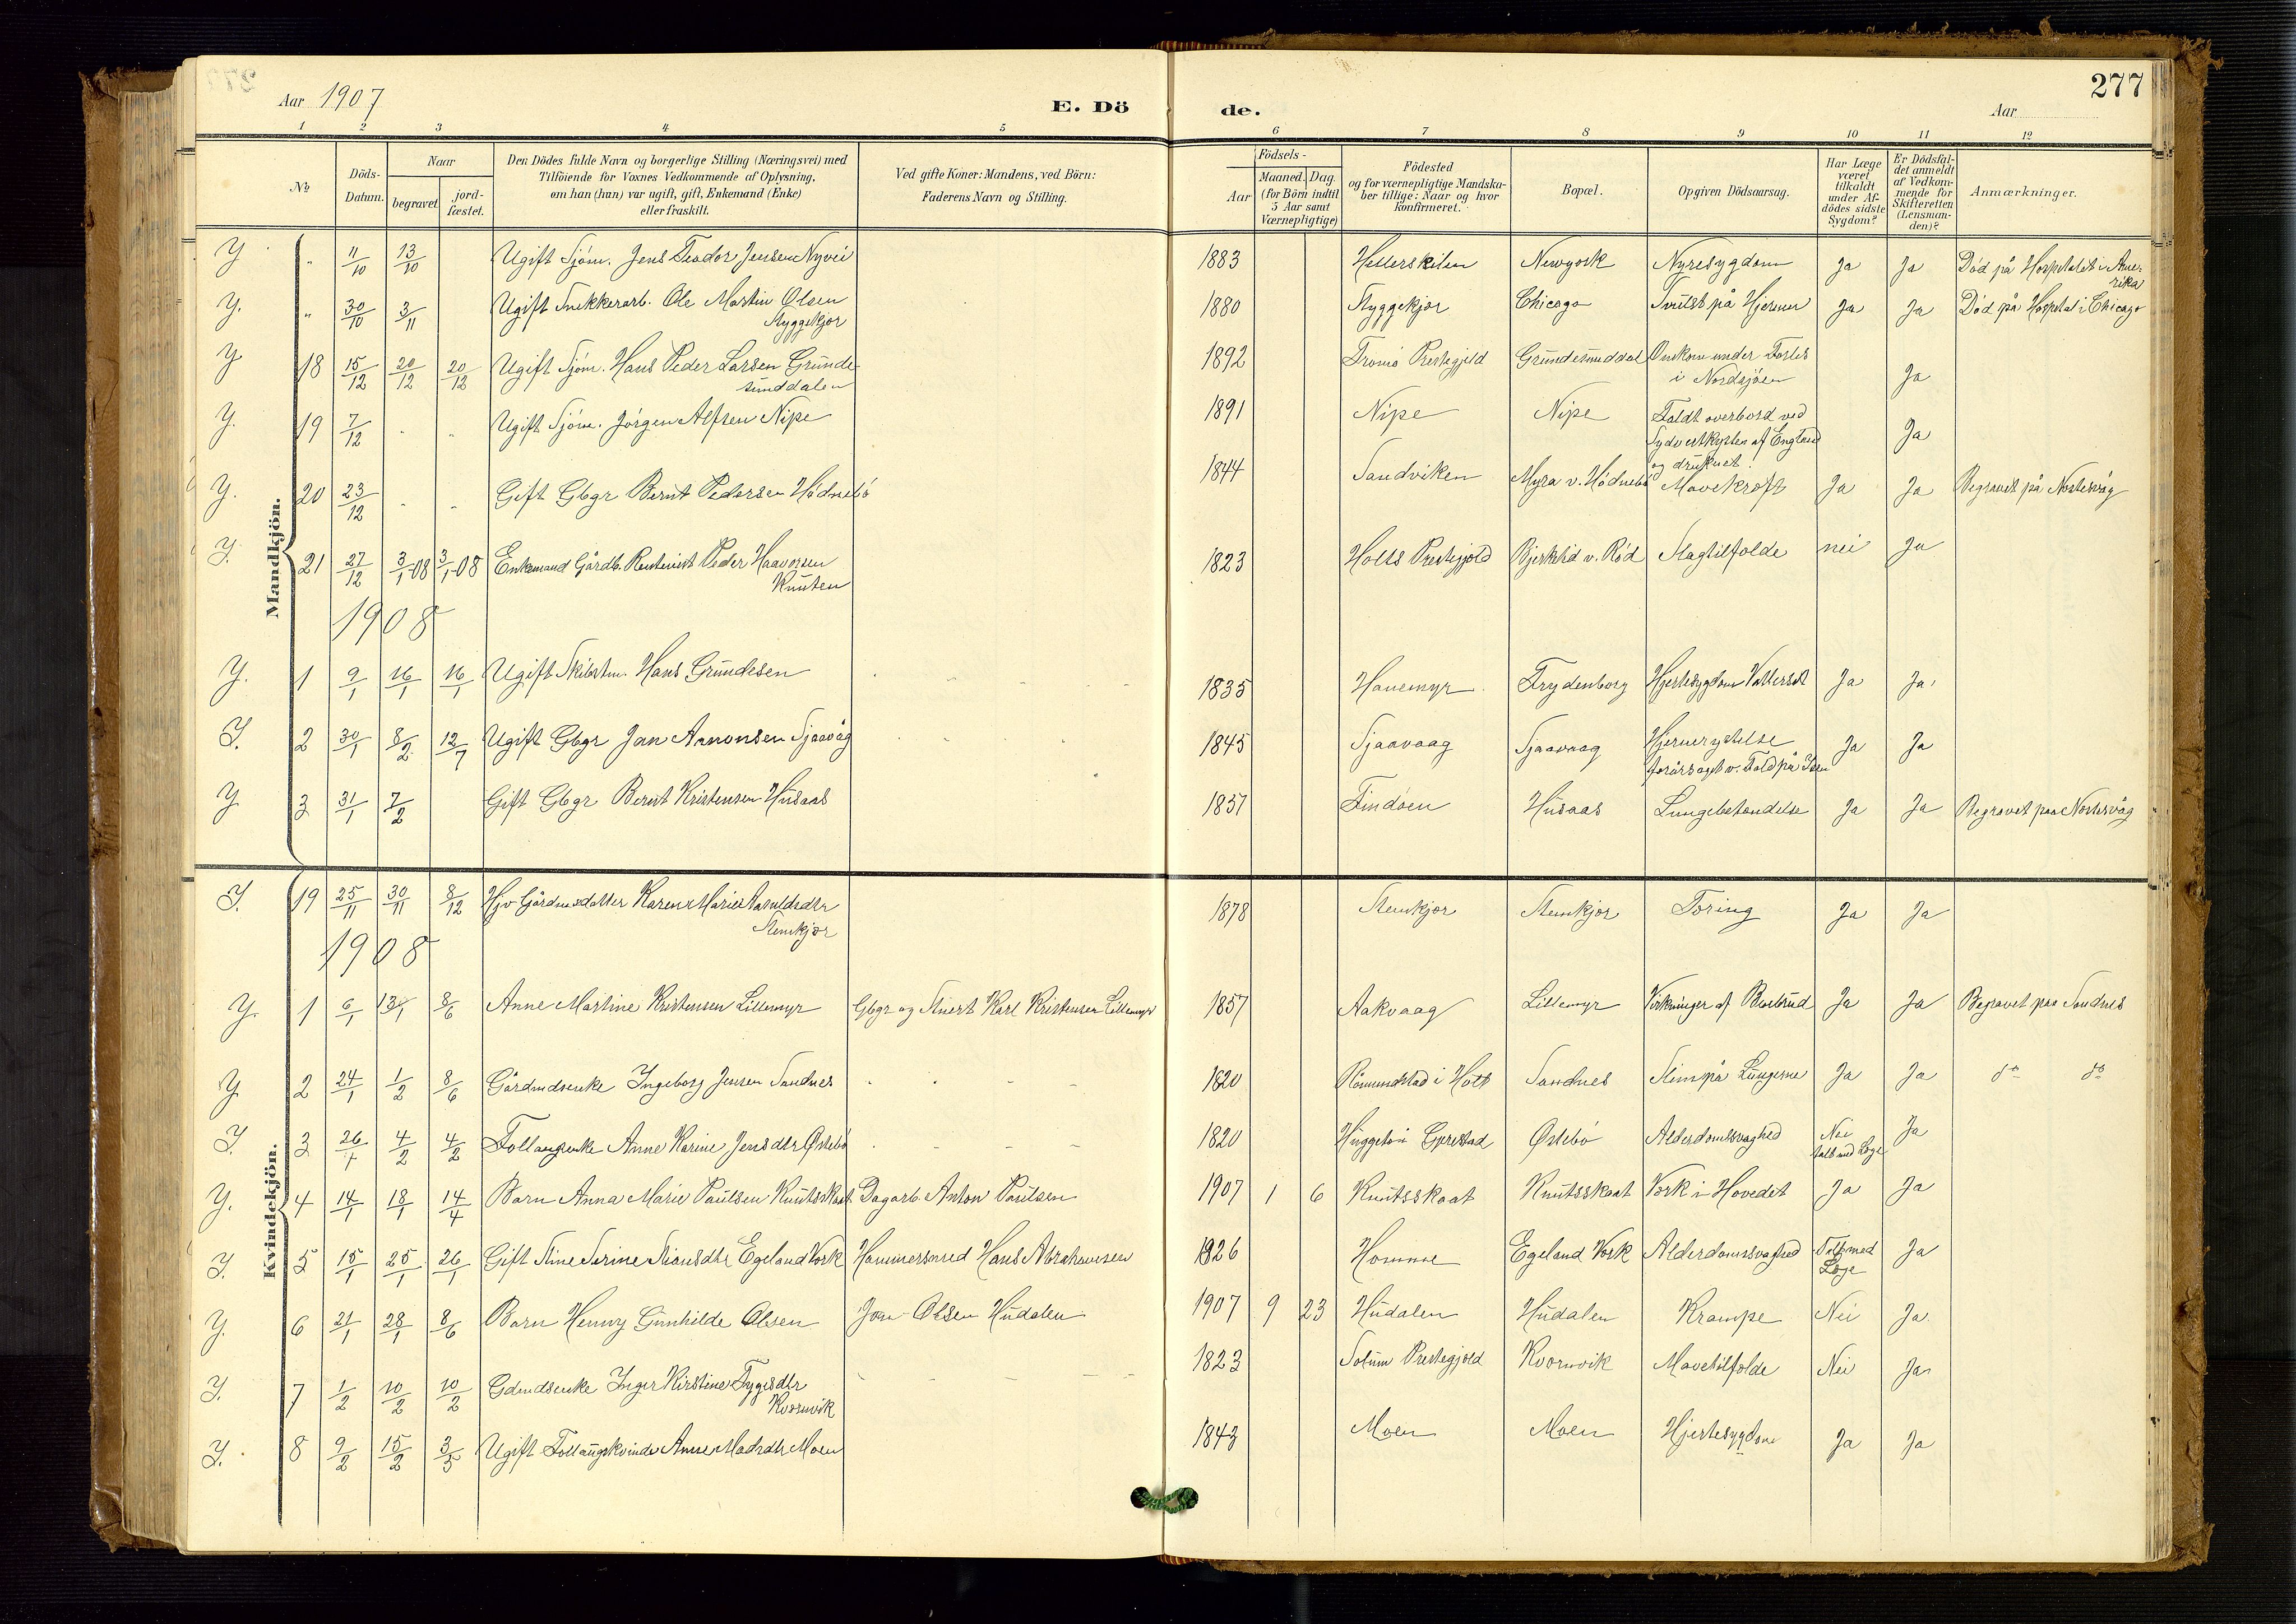 277
Aar 1907
E. Dö
de.
Aar
1 2 3 4 5 6 7 8 9 10 11 12
No
Döds-Datum.
Naar
begravet
jord-fæstet.
Den Dödes fulde Navn og borgerlige Stilling (Næringsvei) med
Tilföiende for Voxnes Vedkommende af Oplysning,
om han (hun) var ugift, gift, Enkemand (Enke)
eller fraskilt.
Ved gifte Koner: Mandens, ved Börn:
Faderens Navn og Stilling.
Födsels-
Aar
Maaned. Dag.
(for Börn indtil
5 Aar samt
Værnepligtige)
Födested
og for værnepligtige Mandska-
ber tillige: Naar og hvor
konfirmeret.
Bopæl.
Opgiven Dödsaarsag.
Har Læge
været
tilkaldt
under Af-
dödes sidste
Sygdom?
Er Dödsfal-
det anmeldt
af Vedkom-
mende for
Skifteretten
(Lensman-
den)?
Anmærkninger.
Mandkjön.
Y. " 11/10 13/10 Ugift Sjøm. Jens Teodor Jensen Nyvei 1883 Hellerskilen Newyork Nyresygdom Ja Ja Død på Hospitalet i Ame-
rika
Y. " 30/10 3/11 Ugift Snekkerarb. Ole Martin Olsen
Styggekjør 1880 Styggekjør Chicago Svulst på Hjernen Ja Ja Død på Hospital i Chicago
Y 18 15/12 20/12 20/12 Ugift Sjøm. Hans Peder Larsen Grunde-
sunddalen 1892 Tromø Prestegjeld Grundesunddal Omkom under Forlis
i Nordsjøen Ja
Y. 19 7/12 Ugift Sjøm. Jørgen Alfsen Nipe 1891 Nipe Nipe Faldt overbord ved
Sydvestkysten af England
og druknet. Ja
Y. 20 23/12 Gift Gbgr Bernt Pedersen Hødnebø 1844 Sandviken Myra v. Hødnebø Mavekræft Ja Ja Begravet på Nostesvåg
I. 21 27/12 3/1-08 3/1-08 Enkemand Gårdb. Peder Haavorsen
Knuten 1823 Holts Prestegjeld Bjerkelid v. Rød Slagtilfælde nei Ja
1908
Y. 1 9/1 16/1 16/1 Ugift Skibstm. Hans Grundesen 1835 Hanemyr Frydenborg Hjertesygdom Vattersot Ja Ja
I. 2 30/1 8/2 12/7 Ugift Gbgr Jan Aanonsen Sjaavåg 1845 Sjaavaag Sjaavaag Hjernerystelse
forårsaget v. Fald på Isen Ja Ja
Y 3 31/1 7/2 Gift Gbgr Bernt Kristensen Husaas 1857 Findøen Husaas Lungebetændelse Ja Ja Begravet paa Nostesvåg
Kvindekjön.
I. 19 25/11 30/11 8/12 Karen Marie
Stenkjør 1878 Stenkjør Stenkjør Tæring Ja Ja
1908
Y. 1 6/1 13/1 8/6 Anne Martine Kristensen Lillemyr Gbgr og Karl Kristensen Lillemyr 1857 Aakvaag Lillemyr Virkninger af Ja Ja Begravet paa Sandnes
Y. 2 24/1 1/2 8/6 Gårdmdsenke Ingeborg Jensen Sandnes 1820 Røimundstad i Holt Sandnes Slim på Lungerne Ja Ja do do
I. 3 26/1 4/2 4/2 Føllaugsenke Anne Karine Jensdtr Østebø 1820 Gjerestad Østebø Alderdomssvaghed Nei
talt med Læge Ja
Y. 4 14/1 18/1 14/4 Barn Anna Marie Paulsen Knutsskaat Dagarb. Anton Paulsen 1907 1 6 Knutsskaat Knutsskaat Værk i Hovedet Ja Ja
I. 5 15/1 25/1 26/1 Gift Stine Serine Stiansdtr Egeland Værk Hammersmed Hans Abrahamsen 1826 Homme Egeland Værk Alderdomssvaghed Talt med
Læge Ja
Y. 6 21/1 28/1 8/6 Barn Henny Gunhilde Olsen Jon Olsen Hudalen 1907 9 23 Hudalen Hudalen Krampe Nei Ja
I. 7 1/2 10/2 10/2 Gdmdsenke Inger Kirstine Tygesdtr
Kvornvik 1823 Solum Prestegjeld Kvornvik Mavetilfælde Nei Ja
I. 8 9/2 15/2 3/5 Ugift Føllaugskvinde Anne Madsdtr Moen 1843 Moen Moen Hjertesygdom Ja Ja